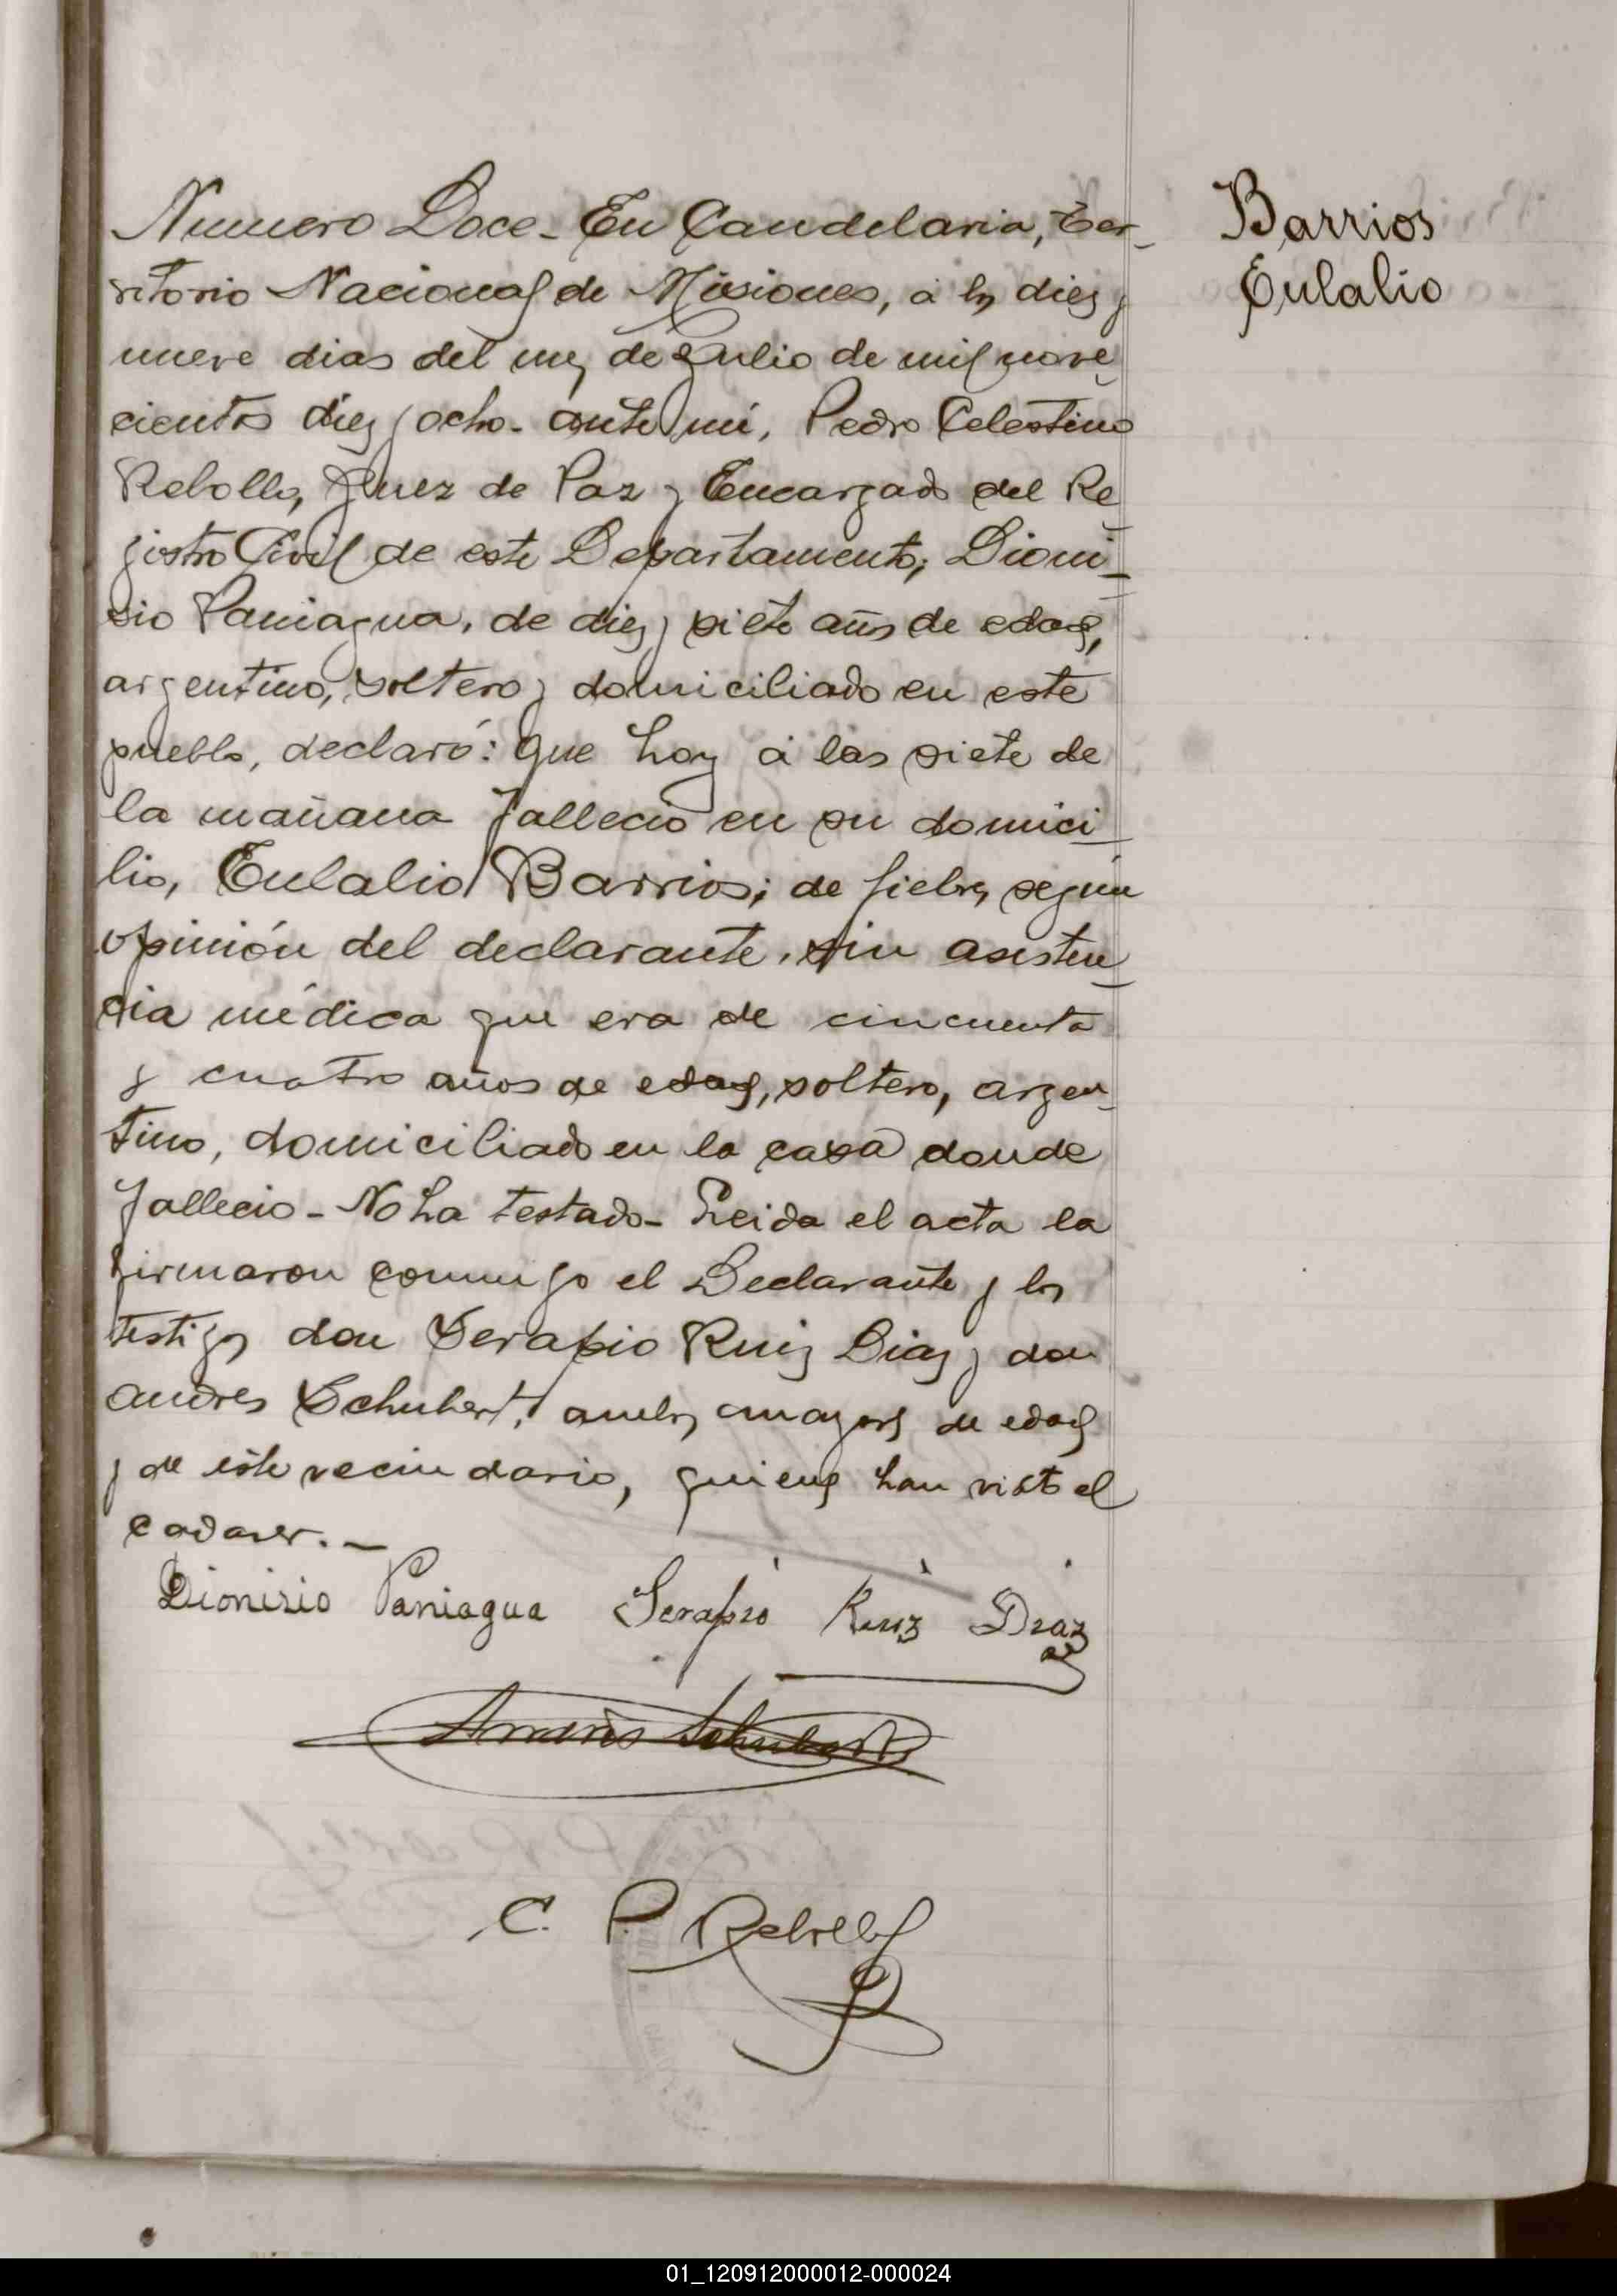 Numero Doce. En Candelaria, Ter-
ritorio Nacional de Misiones, á los diez y
nueve dias del mes de Julio de mil nove-
cientos diez y ocho. ante mí, Pedro Celestino
Rebollo, Juez de Paz y Encargado del Re-
jistro Civil de este Departamento; Dioni-
sio Paniagua, de diez y siete años de edad,
argentino, soltero y domiciliado en este
pueblo, declaró: Que hoy á las siete de
la mañana falleció en su domici-
lio, Eulalio Barrios; de fiebre, según
opinión del declarante, sin asisten-
cia médica que era de cincuenta
y cuatro años de edad, soltero, argen-
tino, domiciliado en la casa donde
fallecio - No ha testado - Leida el acta la
firmaron conmigo el Declarante y los
testigos don Serapio Ruiz Diaz y don
andres Schubert, ambos mayores de edad
y de este vecindario, quienes han visto el
cadaver. -
Dionisio Paniagua Serapio Ruiz Diaz
Andrés Schubert
C. P. Rebollo
Barrios
Eulalio
01_120912000012-000024